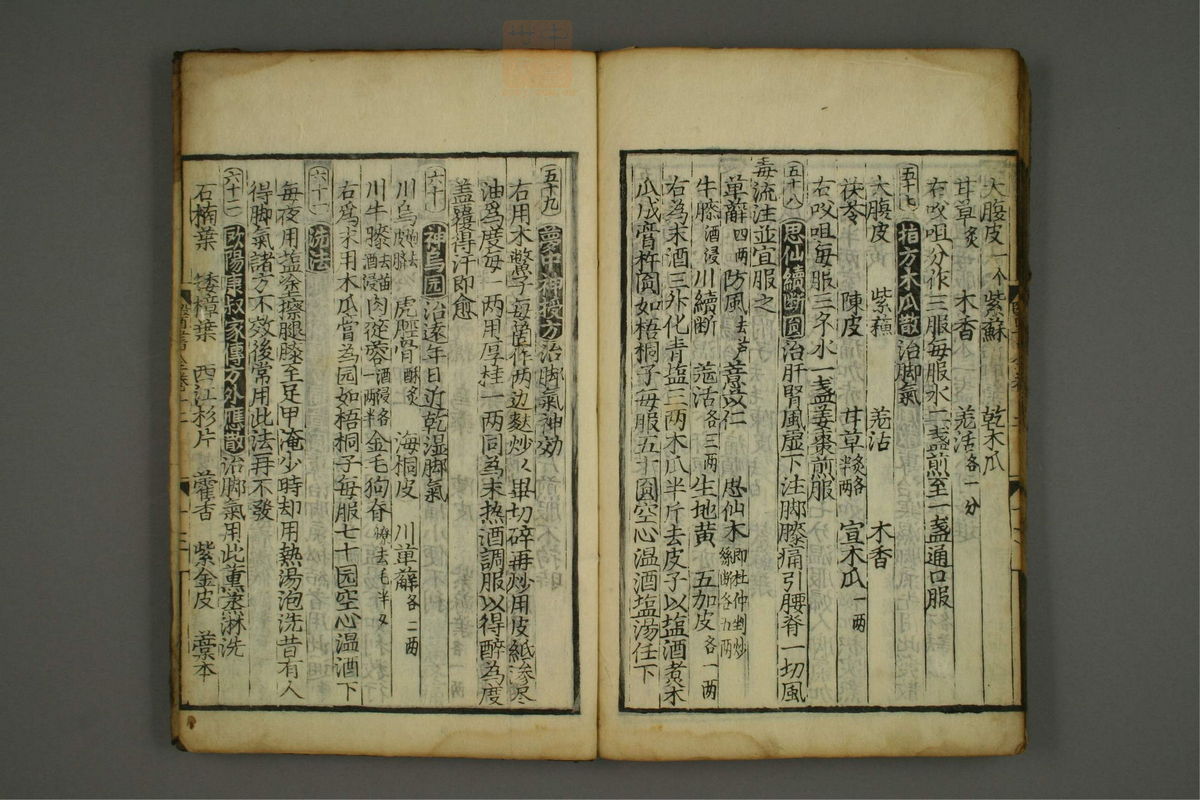 大腹皮一个 紫蘇 乾木瓜
甘草炙 木香 羌活各一分
右㕮咀分作三服每服水一盞煎至一盞通口服
五十七 指方木瓜散治脚氣
大腹皮 紫蘓 羌活 木香
茯苓 陳皮 甘草炙各半两 宣木瓜一两
右㕮咀每服三錢水一盞姜棗煎服
五十八 思仙續断圓治肝腎風虛下注脚膝痛引腰脊一切風
毒流注並宜服之
萆薢四两 防風去芦 薏苡仁 思仙木即杜仲剉炒絲断各五两
牛膝酒浸 川續断 羌活各三两 生地黄 五加皮各一两
右為末酒三升化青塩三两木瓜半斤去皮子以塩酒煮木
瓜成膏杵圓如梧桐子每服五十圓空心温酒塩湯任下
五十九 夢中神授方治脚氣神効
右用木鱉子每箇作两边麩炒以畢切碎再炒用皮紙滲尽
油爲度每一两用厚桂一两同為末热酒調服以得醉為度
盖覆得汗即愈
六十 神烏园治遠年日近乾湿脚氣
川烏炮去皮臍 虎脛骨酥炙 海桐皮 川萆薢各二两
川牛膝去苗酒浸 肉蓯蓉酒浸各一两半 金毛狗脊燎去毛半两
右爲末用木瓜膏為园如梧桐子每服七十园空心温酒下
六十一 洗法
每夜用塩塗擦腿膝至足甲淹少時却用熱湯泡洗昔有人
得脚氣諸方不效後常用此法再不發
六十二 歐陽康叔家傳方外應散治脚氣用此薫蒸淋洗
石楠葉 矮樟葉 西江杉片 藿香 紫金皮 藁本